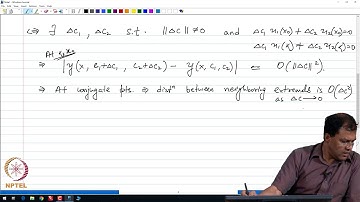 ⇔ ∃ ΔC₁, ΔC₂ s.t. ‖ΔC‖ ≠ 0 and ΔC₁ u₁(x₀) + ΔC₂ u₂(x₀) = 0
ΔC₁ u₁(x̃) + ΔC₂ u₂(x̃) = 0
At
⇒ |y(x, C₁+ΔC₁, C₂+ΔC₂) − y(x, C₁, C₂)| = O(‖ΔC‖²)
⇒ At conjugate pts. ⇒ distⁿ between neighboring extremals is O(ΔC²)
as ΔC → 0
NPTEL